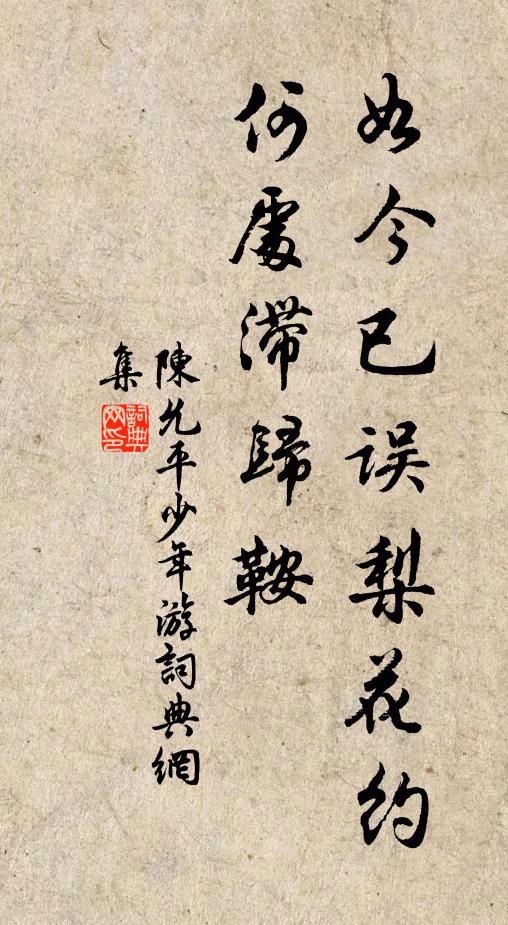 如今已误梨花约
何處滞歸鞍
陳允平少年游詞典網
集
詞典
网印